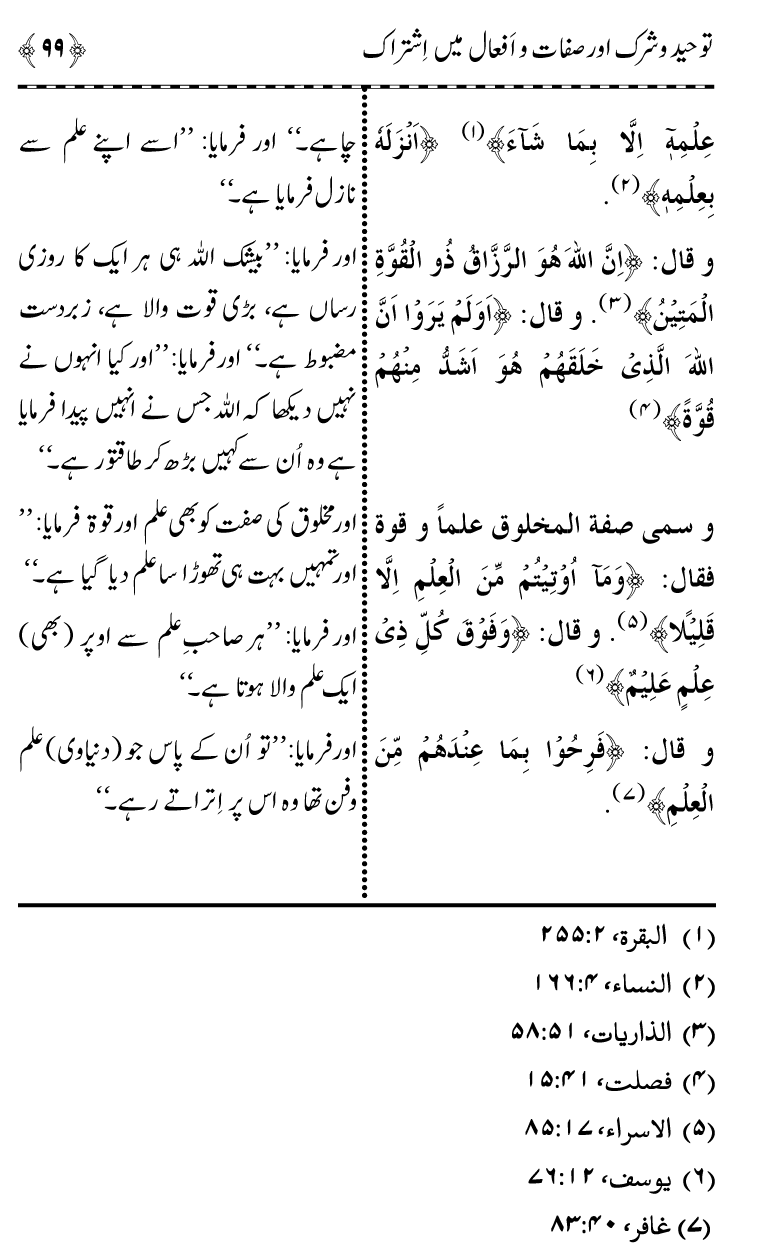 توحید و شرک اور صفات و اَفعال میں اِشتراک ﴿۹۹﴾
عِلْمِهٖٓ اِلَّا بِمَا شَآءَ﴾(۱) ﴿اَنْزَلَهٗ
بِعِلْمِهٖ﴾(۲).
و قال: ﴿اِنَّ اللهَ هُوَ الرَّزَّاقُ ذُو الْقُوَّةِ
الْمَتِيْنُ﴾(۳). و قال: ﴿اَوَلَمْ يَرَوْا اَنَّ
اللهَ الَّذِیْ خَلَقَهُمْ هُوَ اَشَدُّ مِنْهُمْ
قُوَّةً﴾(۴)
و سمى صفة المخلوق علماً و قوة
فقال: ﴿وَمَآ اُوْتِيْتُمْ مِّنَ الْعِلْمِ اِلَّا
قَلِيْلًا﴾(۵). و قال: ﴿وَفَوْقَ كُلِّ ذِیْ
عِلْمٍ عَلِيْمٌ﴾(۶)
و قال: ﴿فَرِحُوْا بِمَا عِنْدَهُمْ مِّنَ
الْعِلْمِ﴾(۷).
چاہے۔‘‘ اور فرمایا: ’’اسے اپنے علم سے
نازل فرمایا ہے۔‘‘
اور فرمایا: ’’بیشک اللہ ہی ہر ایک کا روزی
رساں ہے، بڑی قوت والا ہے، زبردست
مضبوط ہے۔‘‘ اور فرمایا: ’’اور کیا انہوں نے
نہیں دیکھا کہ اللہ جس نے انہیں پیدا فرمایا
ہے وہ اُن سے کہیں بڑھ کر طاقتور ہے۔‘‘
اور مخلوق کی صفت کو بھی علم اور قوۃ فرمایا: ’’
اور تمہیں بہت ہی تھوڑا سا علم دیا گیا ہے۔‘‘
اور فرمایا: ’’ہر صاحبِ علم سے اوپر (بھی)
ایک علم والا ہوتا ہے۔‘‘
اور فرمایا: ’’تو اُن کے پاس جو (دنیاوی) علم
وفن تھا وہ اس پر اِتراتے رہے۔‘‘
(۱) البقرة، ۲:۲۵۵
(۲) النساء، ۴:۱۶۶
(۳) الذاريات، ۵۱:۵۸
(۴) فصلت، ۴۱:۱۵
(۵) الاسراء، ۱۷:۸۵
(۶) يوسف، ۱۲:۷۶
(۷) غافر، ۴۰:۸۳